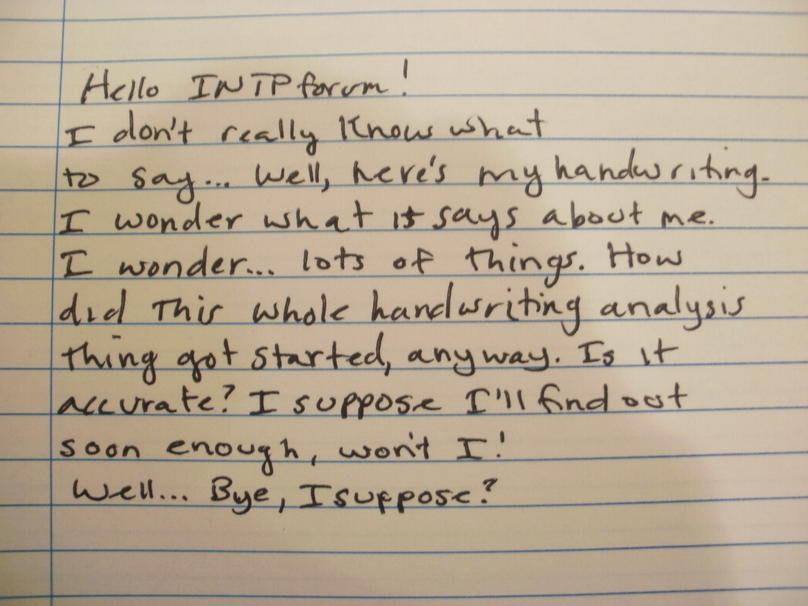 Hello INTP forum!
I don't really know what
to say... Well, here's my handwriting.
I wonder what it says about me.
I wonder... lots of things. How
did this whole handwriting analysis
thing got started, anyway. Is it
accurate? I suppose I'll find out
soon enough, won't I!
Well... Bye, I suppose?